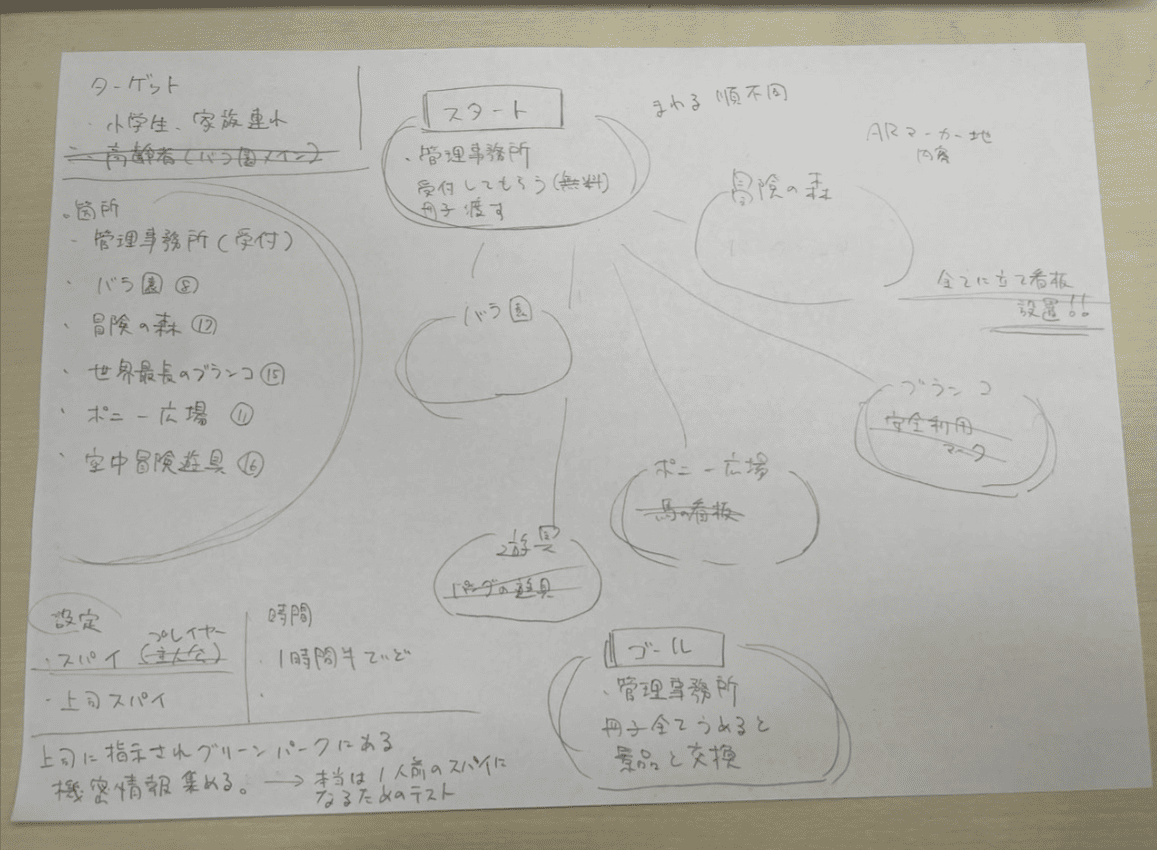 ターゲット
・小学生、家族連れ
・高齢者(バラ園メイン)
。箇所
・管理事務所(受付)
・バラ園⑧
・冒険の森⑰
・世界最長のブランコ⑮
・ポニー広場⑪
・空中冒険遊具⑯
スタート
・管理事務所
受付してもらう(無料)
冊子渡す
まわる順不同
ARマーカー地
内容
冒険の森
全てに立て看板
設置!!
バラ園
ブランコ
安全利用
マーク
ポニー広場
馬の看板
遊具
の遊具
設定
プレイヤー
・スパイ(主人公)
・上司スパイ
時間
・1時間半ていど
・
上司に指示されグリーンパークにある
機密情報集める。→本当は1人前のスパイに
なるためのテスト
ゴール
・管理事務所
冊子全てうめると
景品と交換